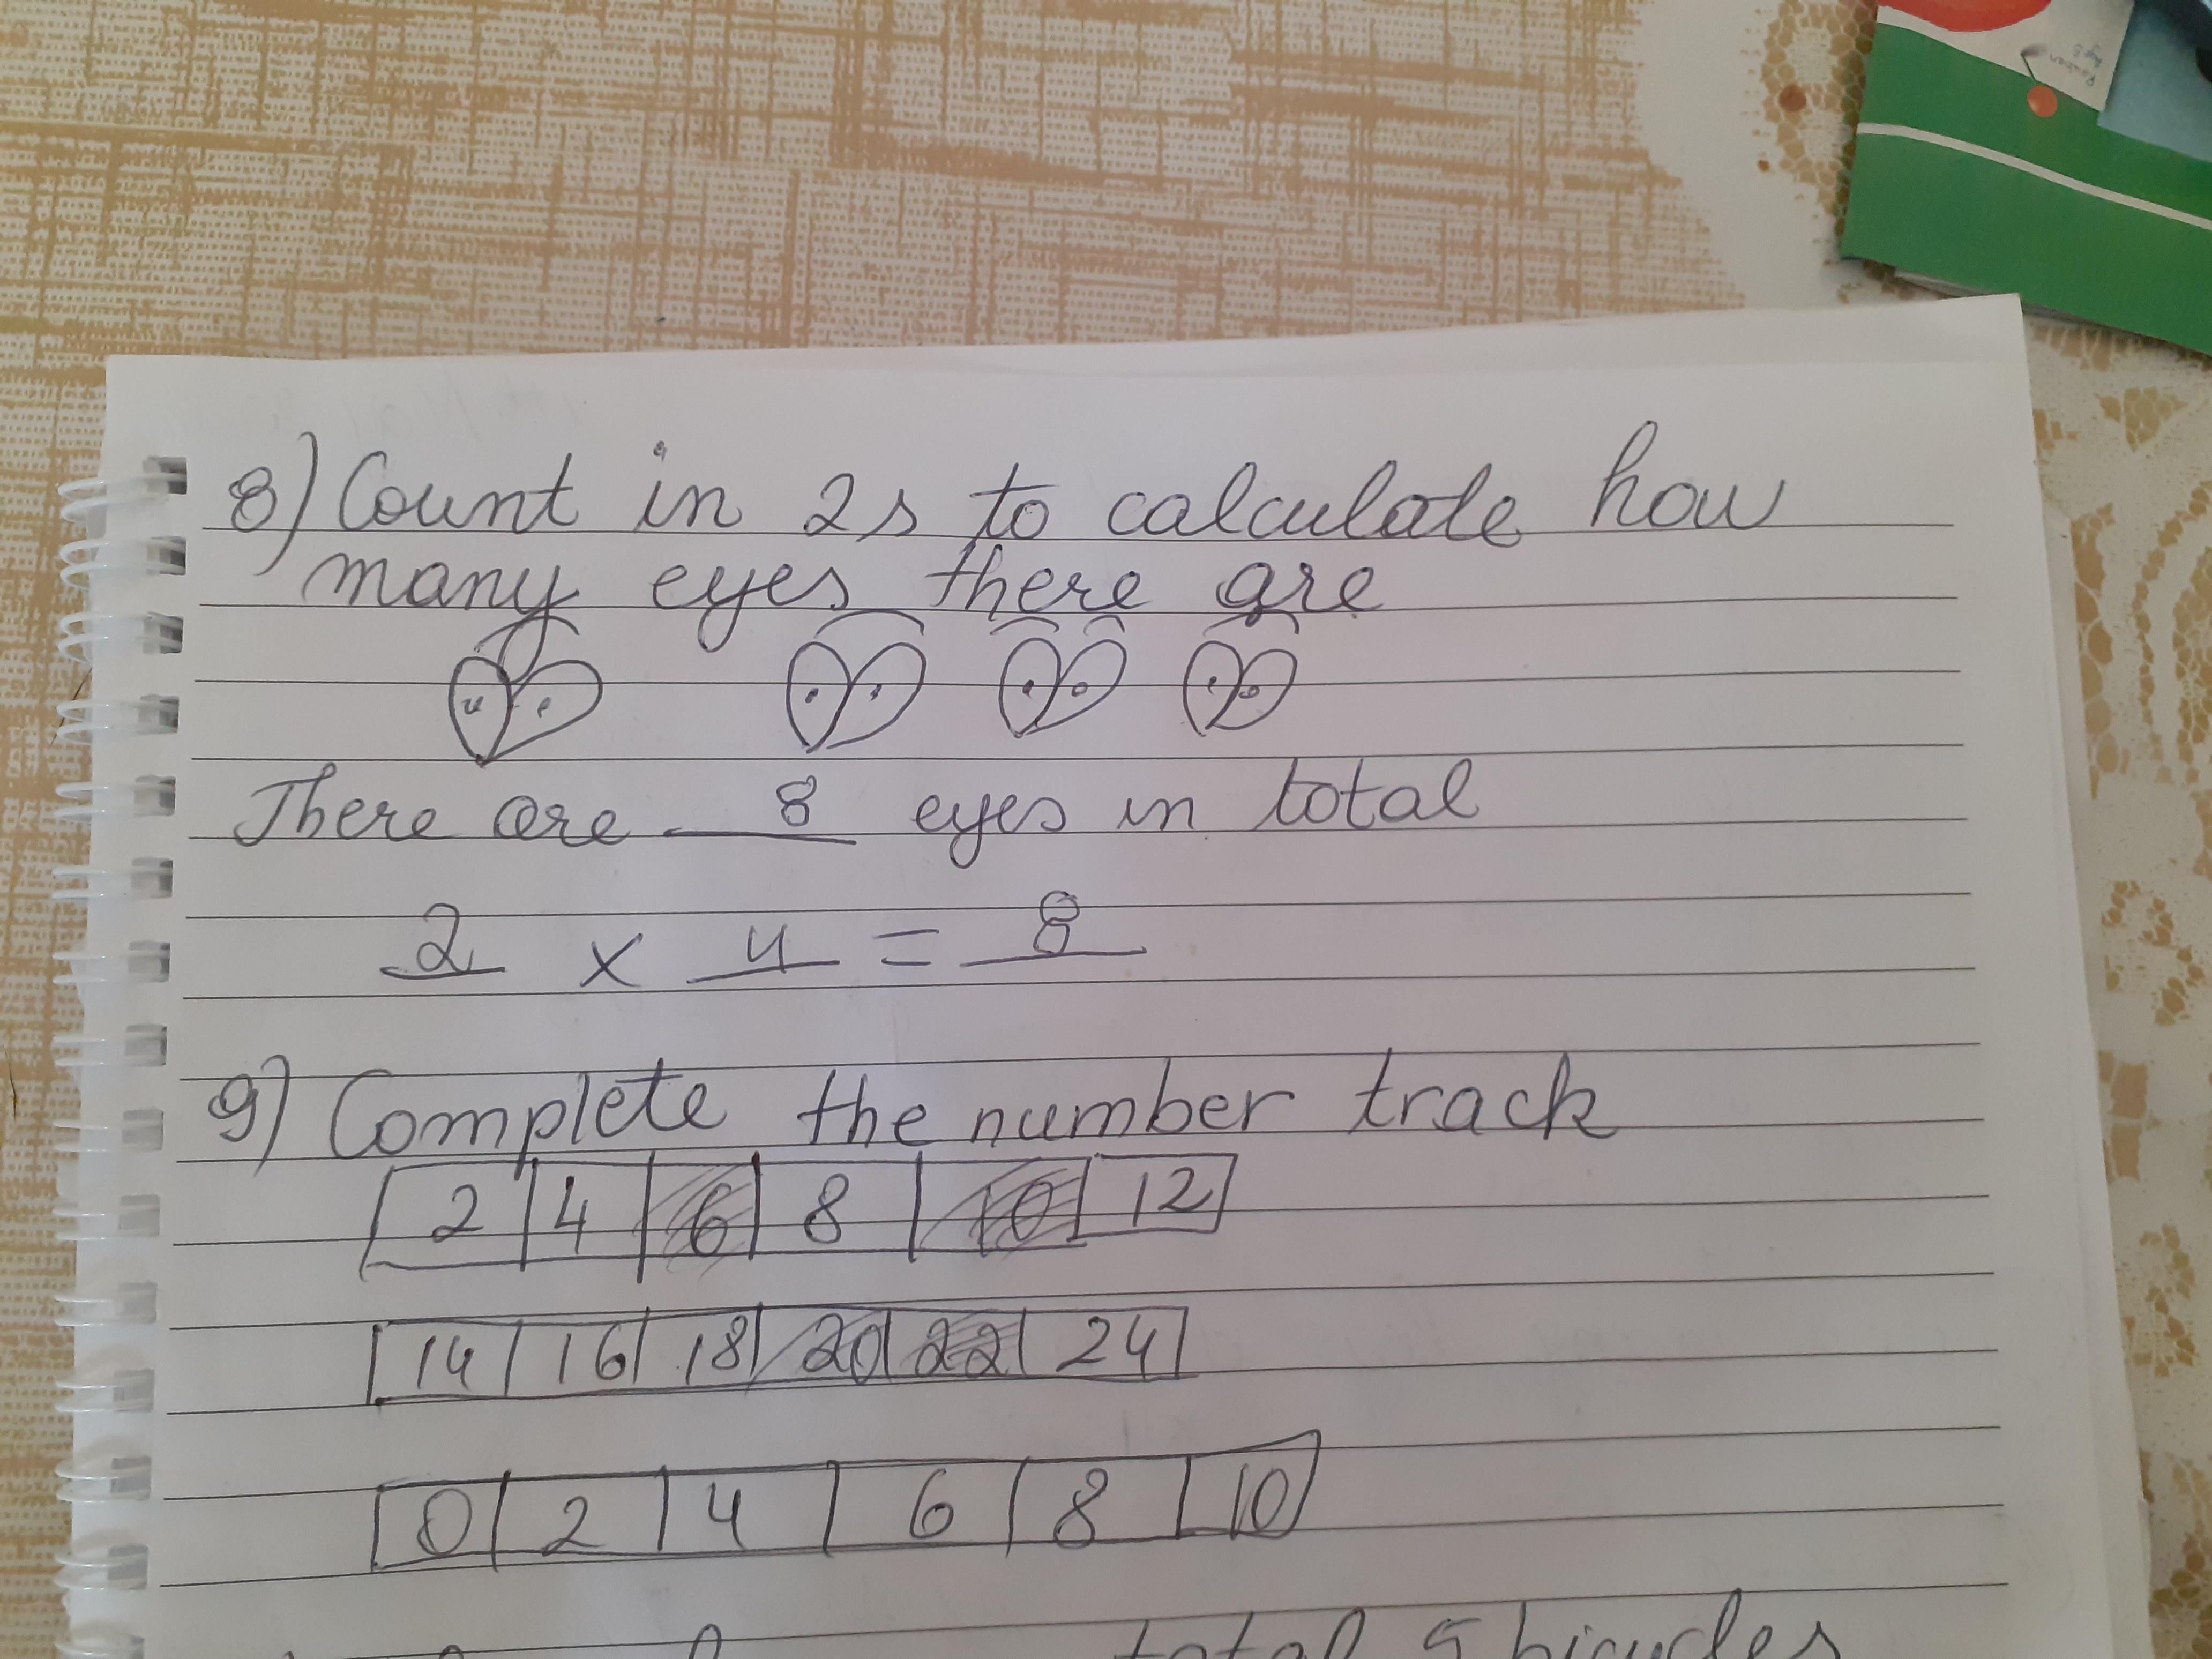 8) Count in 2s to calculate how
many eyes there are
There are 8 eyes in total
2 x 4 = 8
9) Complete the number track
2 4 6 8 10 12
14 16 18 20 22 24
0 2 4 6 8 10
total 5 bicycles